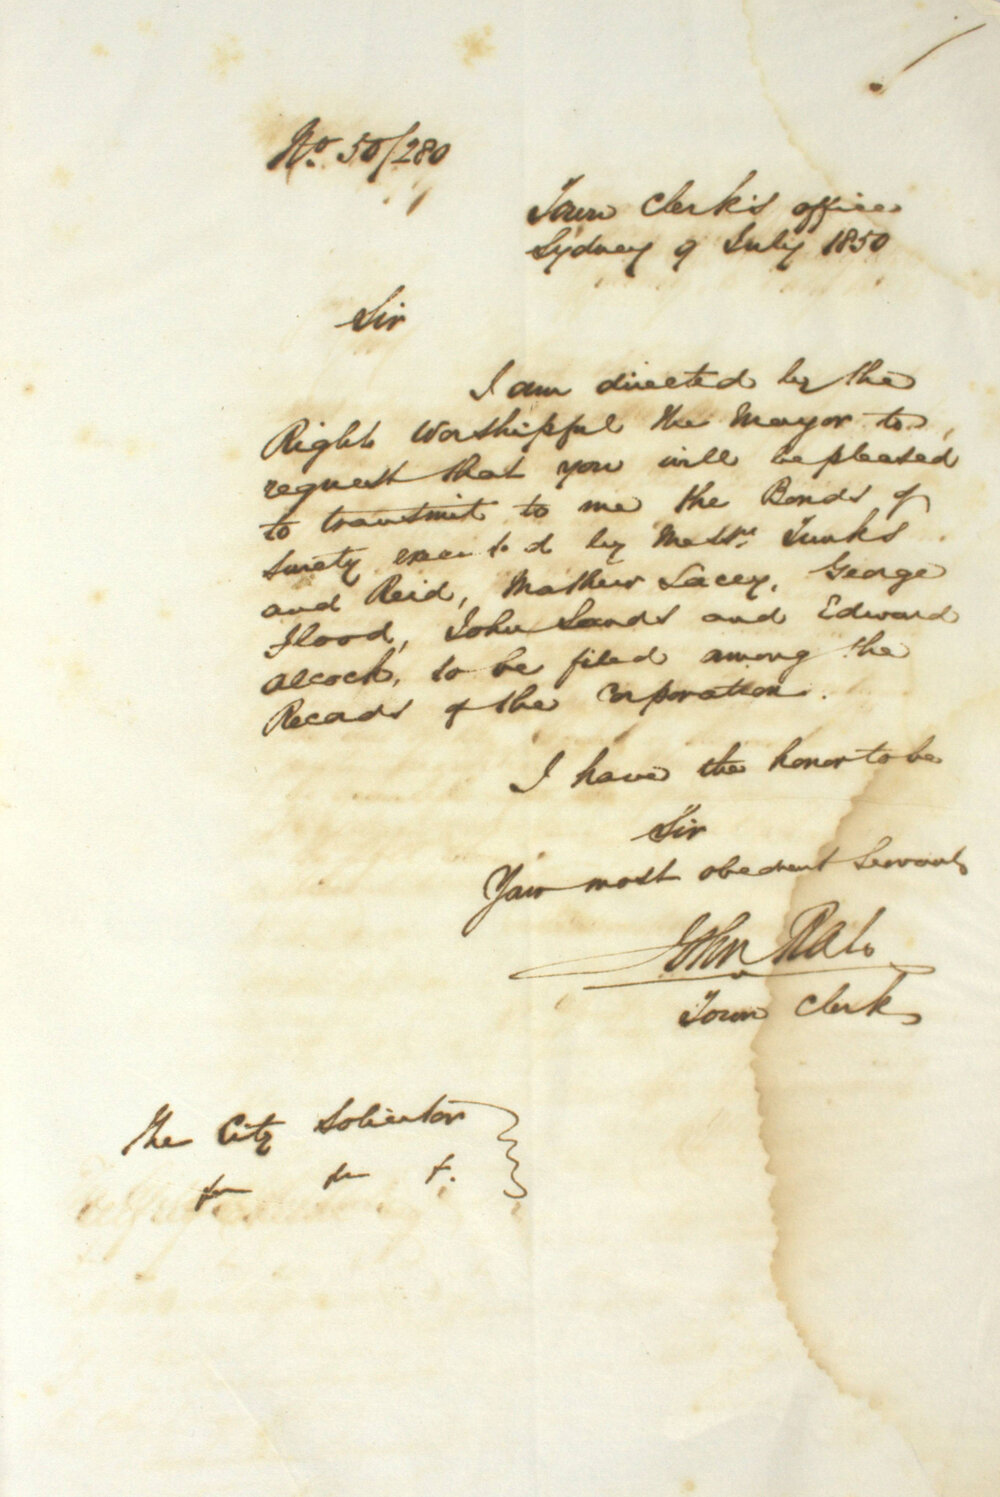 No. 50/280
Town Clerk's office
Sydney 9 July 1850
Sir
I am directed by the
Right Worshipful the Mayor to
request that you will be pleased
to transmit to me the Bonds of
Surety executed by Messrs. Tunks
and Reid, Mathew Lacey, George
Flood, John Sands and Edward
Alcock, to be filed among the
Records of the Corporation.
I have the honor to be
Sir
Your most obedient Servant
John Rae
Town Clerk
The City Solicitor